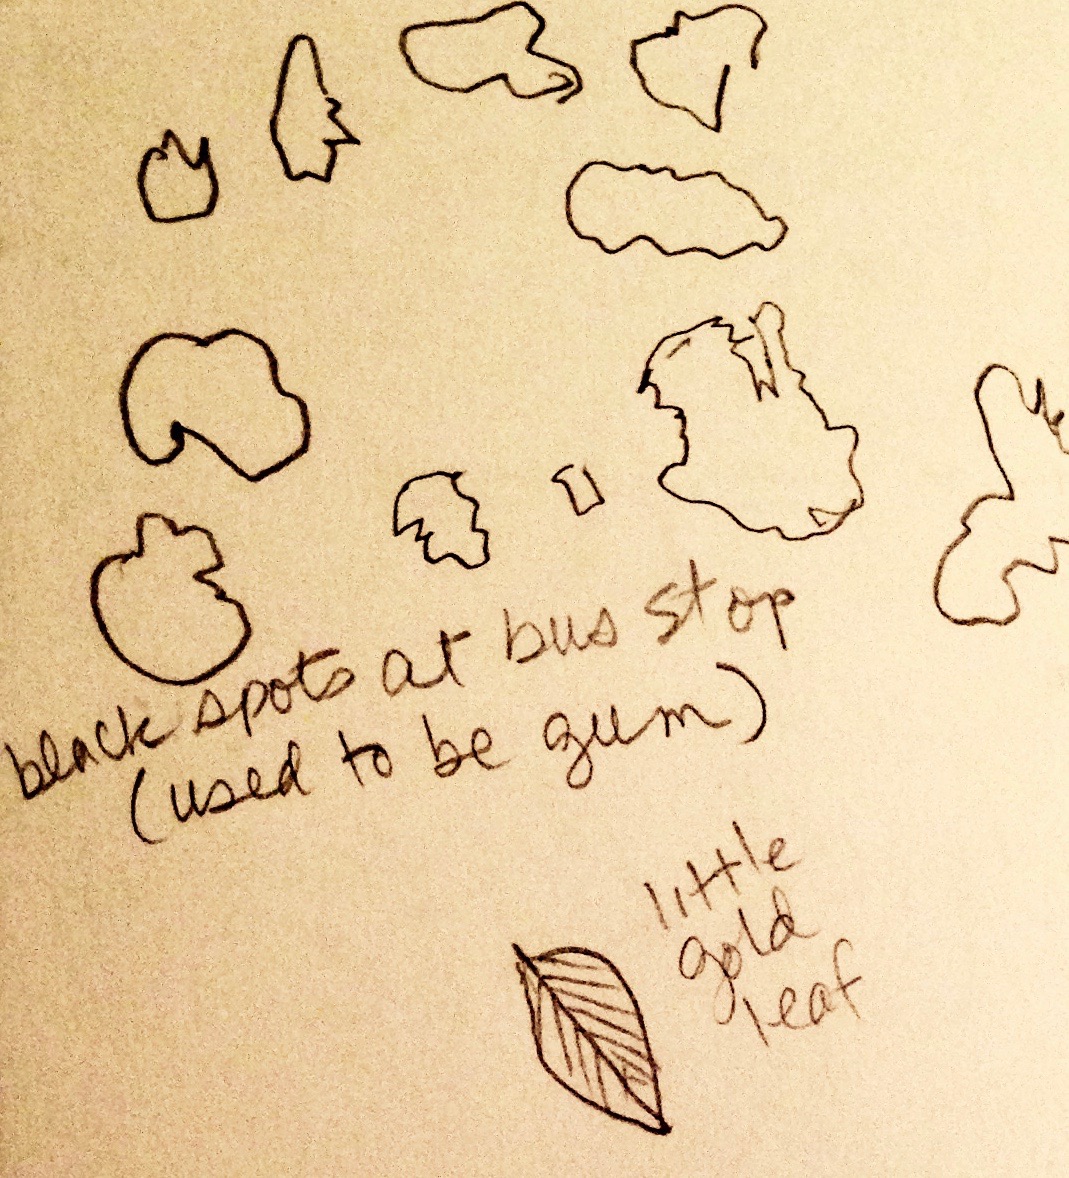 black spots at bus stop
(used to be gum)
little
gold
leaf